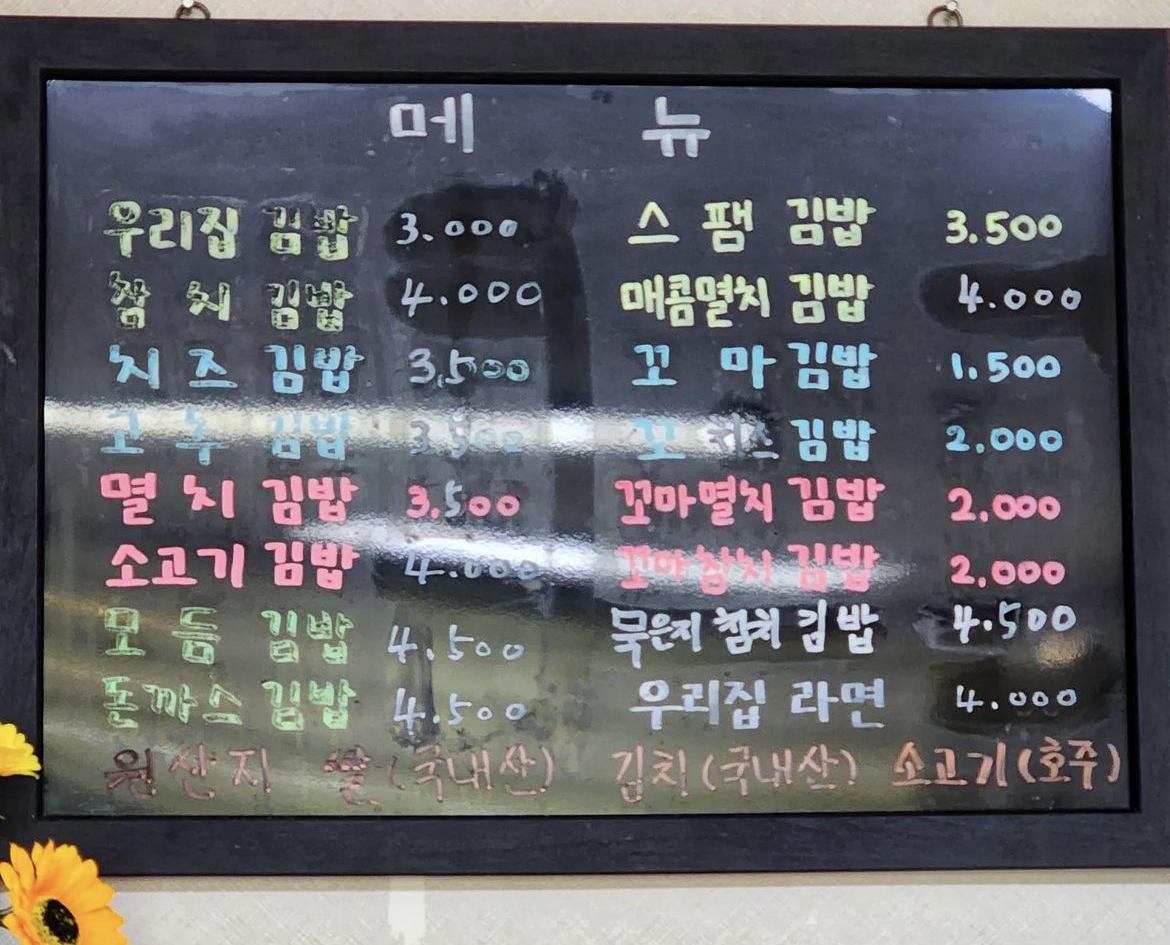 메 뉴
우리집 김밥 3.000
참 치 김밥 4.000
치 즈 김밥 3.500
고 추 김밥 3.500
멸 치 김밥 3.500
소고기 김밥 4.000
모 듬 김밥 4.500
돈까스 김밥 4.500
스 팸 김밥 3.500
매콤멸치 김밥 4.000
꼬 마 김밥 1.500
꼬 치즈 김밥 2.000
꼬마멸치 김밥 2.000
꼬마참치 김밥 2.000
묵은지 참치 김밥 4.500
우리집 라면 4.000
원산지 쌀 (국내산) 김치 (국내산) 소고기 (호주)